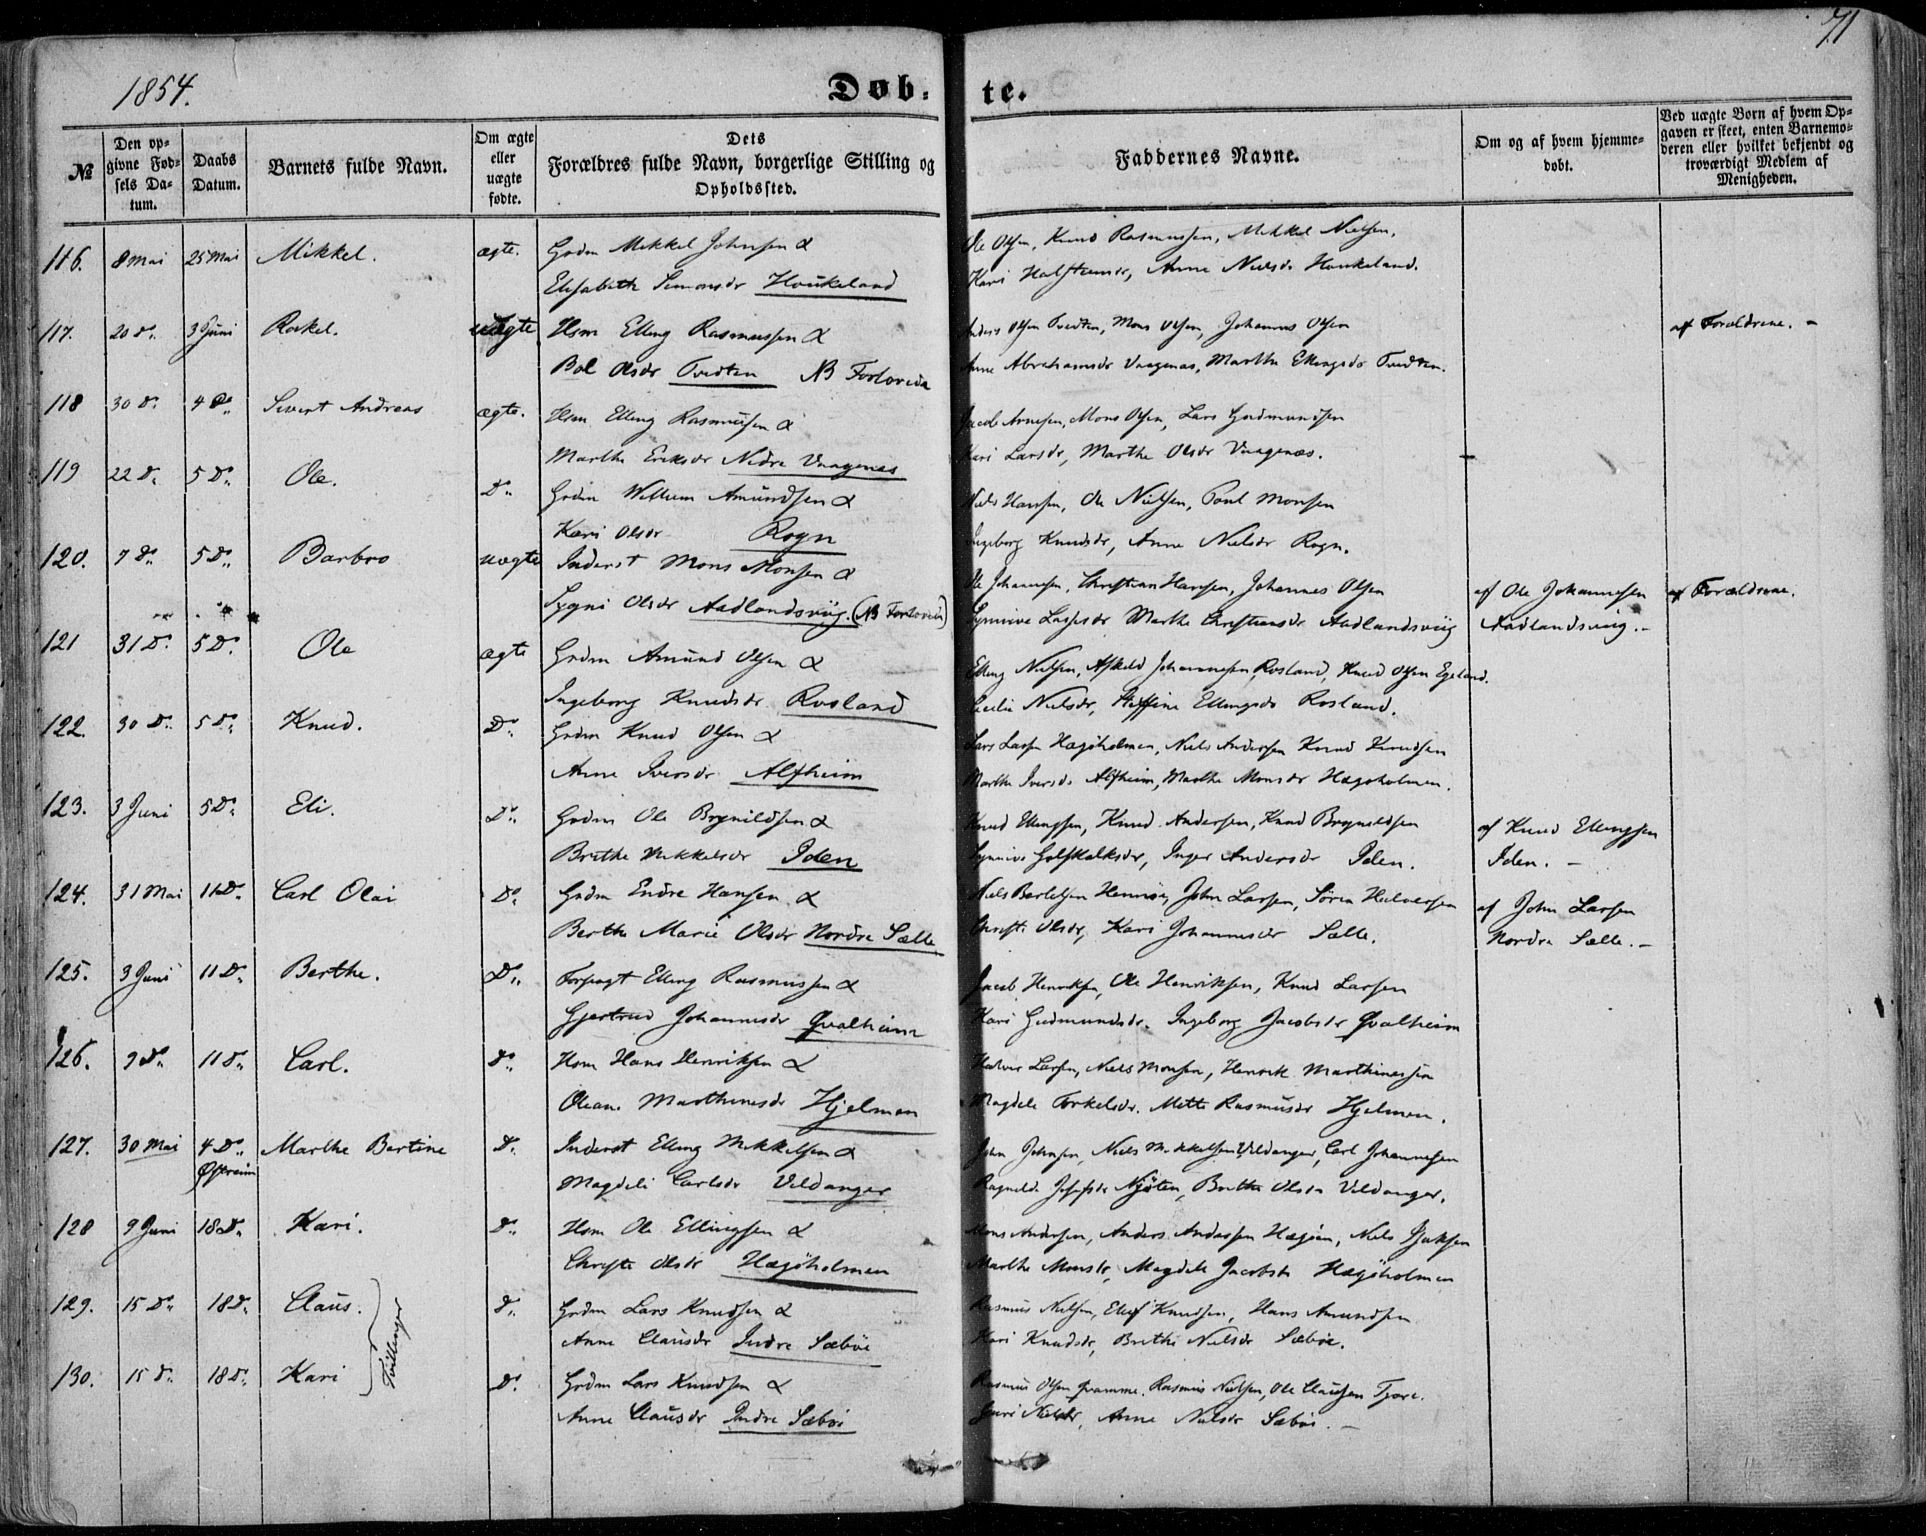 1854.
Døb-
te.
71
№
Den opgivne Fødsels Datum.
Daabs Datum.
Barnets fulde Navn.
Om ægte eller uægte fødte.
Dets Forældres fulde Navn, borgerlige Stilling og Opholdssted.
Faddernes Navne.
Om og af hvem hjemmedøbt.
Ved uægte Børn af hvem Opgaven er skeet, enten Barnemoderen eller hvilket bekjendt og troværdigt Medlem af Menigheden.
116. 8 Mai 25 Mai Mikkel. ægte. Grdm Mikkel Johnsen &
Elisabeth Simonsdr Houkeland
Ole Olsen, Knud Rasmussen, Mikkel Nielsen,
Kari Halsteinsdr, Anne Nielsdr Houkeland.
117. 20 D. 3 Juni Rakel. uægte Hsm Elling Rasmussen &
Bol Olsdr Tvedten NB Forlovede
Anders Olsen Tvedten, Mons Olsen, Johannes Olsen
Anne Abrahamsdr Vaagenæs, Marthe Ellingsdr Tvedten.
af Forældrene. -
118 30 D. 4 D. Sivert Andreas ægte. Hsm Elling Rasmussen &
Marthe Eriksdr Nedre Vaagenes
Jacob Arnesen, Mons Olsen, Lars Gudmundsen
Kari Larsdr, Marthe Olsdr Vaagenæs.
119 22 D. 5 D. Ole. D. Grdm Willum Amundsen &
Kari Olsdr Rogn
Niels Hansen, Ole Nielsen, Poul Monsen
Ingeborg Knudsdr, Anne Nielsdr Rogn.
120. 7 D. 5 D. Barbro uægte Inderst Mons Monsen &
Sygni Olsdr Aadlandsviig. (NB Forlovede)
Ole Johannesen, Christian Hansen, Johannes Olsen
Synnive Lassesdr Marthe Christiansdr Aadlandsviig
af Ole Johannesen
Aadlandsviig. -
af Forældrene.
121 31 D. 5 D. Ole ægte Grdm Amund Olsen &
Ingeborg Knudsdr Rosland
Elling Nielsen, Askild Johannesen Rosland, Knud Olsen Egeland.
Cecilie Nielsdr, Steffine Ellingsdr Rosland.
122. 30 D. 5 D. Knud. D. Grdm Knud Olsen &
Anne Iversdr Alfheim
Lars Larsen Hægøholmen, Niels Andersen Knud Knudsen
Marthe Iversdr Alfheim, Marthe Monsdr Hægøholmen.
123. 3 Juni 5 D. Eli. D. Grdm Ole Brynildsen &
Brithe Mikkelsdr Iden
Knud Ellingsen, Knud Andersen, Knud Brynildsen
Synnive Godskalksdr, Inger Andersdr Iden.
af Knud Ellingsen
Iden. -
124. 31 Mai 11 D. Carl Olai D. Grdm Endre Hansen &
Berthe Marie Olsdr Nordre Sælle
Niels Bertelsen Hennøe, John Larsen, Søren Halvorsen
Christi Olsdr, Kari Johannesdr Sælle.
af John Larsen
Nordre Sælle. -
125. 3 Juni 11 D. Berthe. D. Forpagt Elling Rasmussen &
Gjertrud Johannesdr Qvalheim
Jacob Henriksen, Ole Henriksen, Knud Larsen
Kari Gudmundsdr. Ingeborg Jacobsdr Qvalheim
126. 9 D. 11 D. Carl. D. Hsm Hans Henriksen &
Oleane Marthinusdr Hjelmen
Halvor Larsen, Niels Monsen, Henrik Marthinussen
Magdele Torkelsdr. Mette Rasmusdr Hjelmen.
127. 30 Mai 4 D. Østreim Marthe Bertine D. Inderst Elling Mikkelsen &
Magdeli Carlsdr Vildanger
John Johnsen, Niels Mikkelsen Vildanger, Carl Johannesen
Ragnilde Josefsdr Njøten, Brithe Olsdr Vildanger.
128 9 Juni 18 D. Kari. D. Hsm Ole Ellingsen &
Christi Olsdr Hægøholmen
Mons Andersen, Anders Andersen Hægøen, Niels Isaksen
Marthe Monsdr, Magdele Jacobsdr Hægøholmen
129. 15 D. 18 D. Claus. D. Grdm Lars Knudsen &
Anne Clausdr Indre Sæbøe
Rasmus Nielsen, Elluf Knudsen, Hans Amundsen
Kari Knudsdr, Brithe Nielsdr Sæbøe.
Tvillinger
130. 15 D. 18 D. Kari D. Grdm Lars Knudsen &
Anne Clausdr Indre Sæbøe
Rasmus Olsen Qvamme. Rasmus Nielsen, Ole Clausen Tjore.
Guri Nielsdr, Anne Nielsdr Sæbøe. -